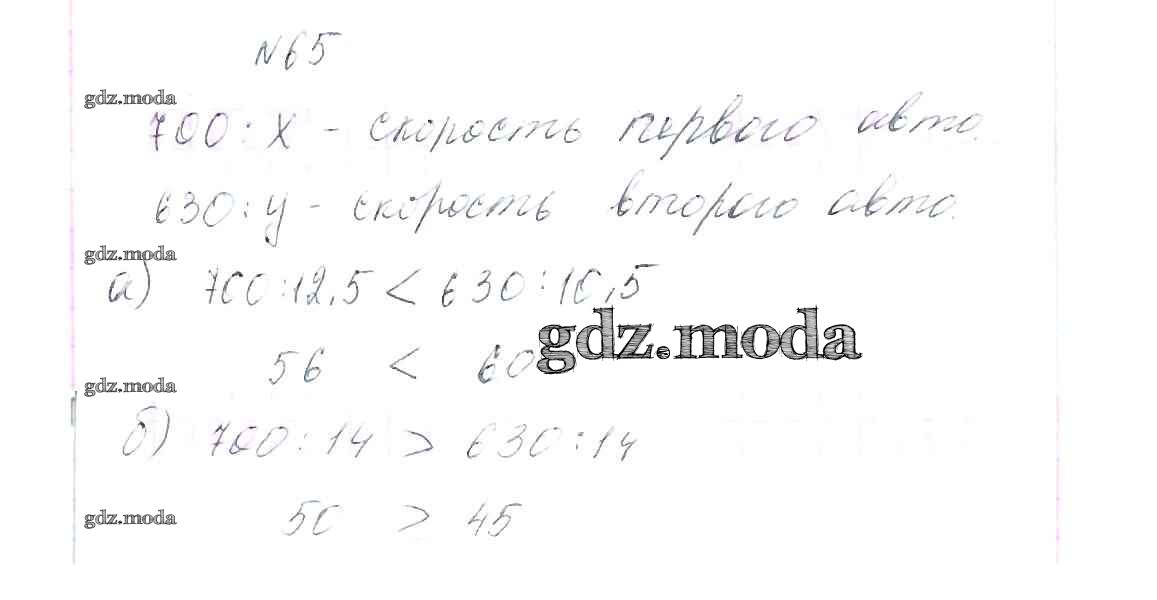 N65
gdz.moda
700 : x - скорость первого авто.
630 : y - скорость второго авто.
gdz.moda
а) 700 : 12,5 < 630 : 10,5
gdz.moda
56 < 60
gdz.moda
б) 700 : 14 > 630 : 14
gdz.moda
50 > 45